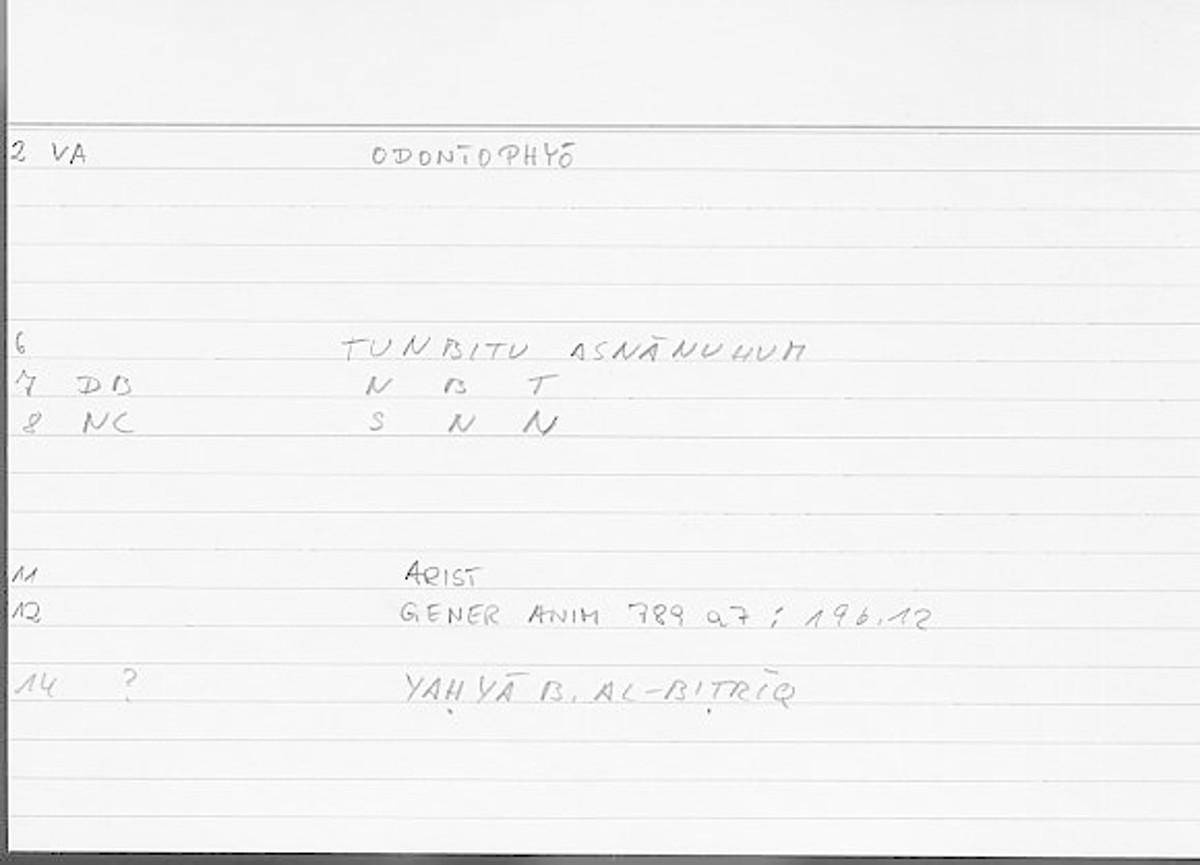 2 VA ODONTOPHYŌ
6 TUNBITU ASNĀNUHUM
7 DB N B T
8 NC S N N
11 ARIST
12 GENER ANIM 789 a7 ; 196.12
14 ? YAḤYĀ B. AL-BIṬRĪQ